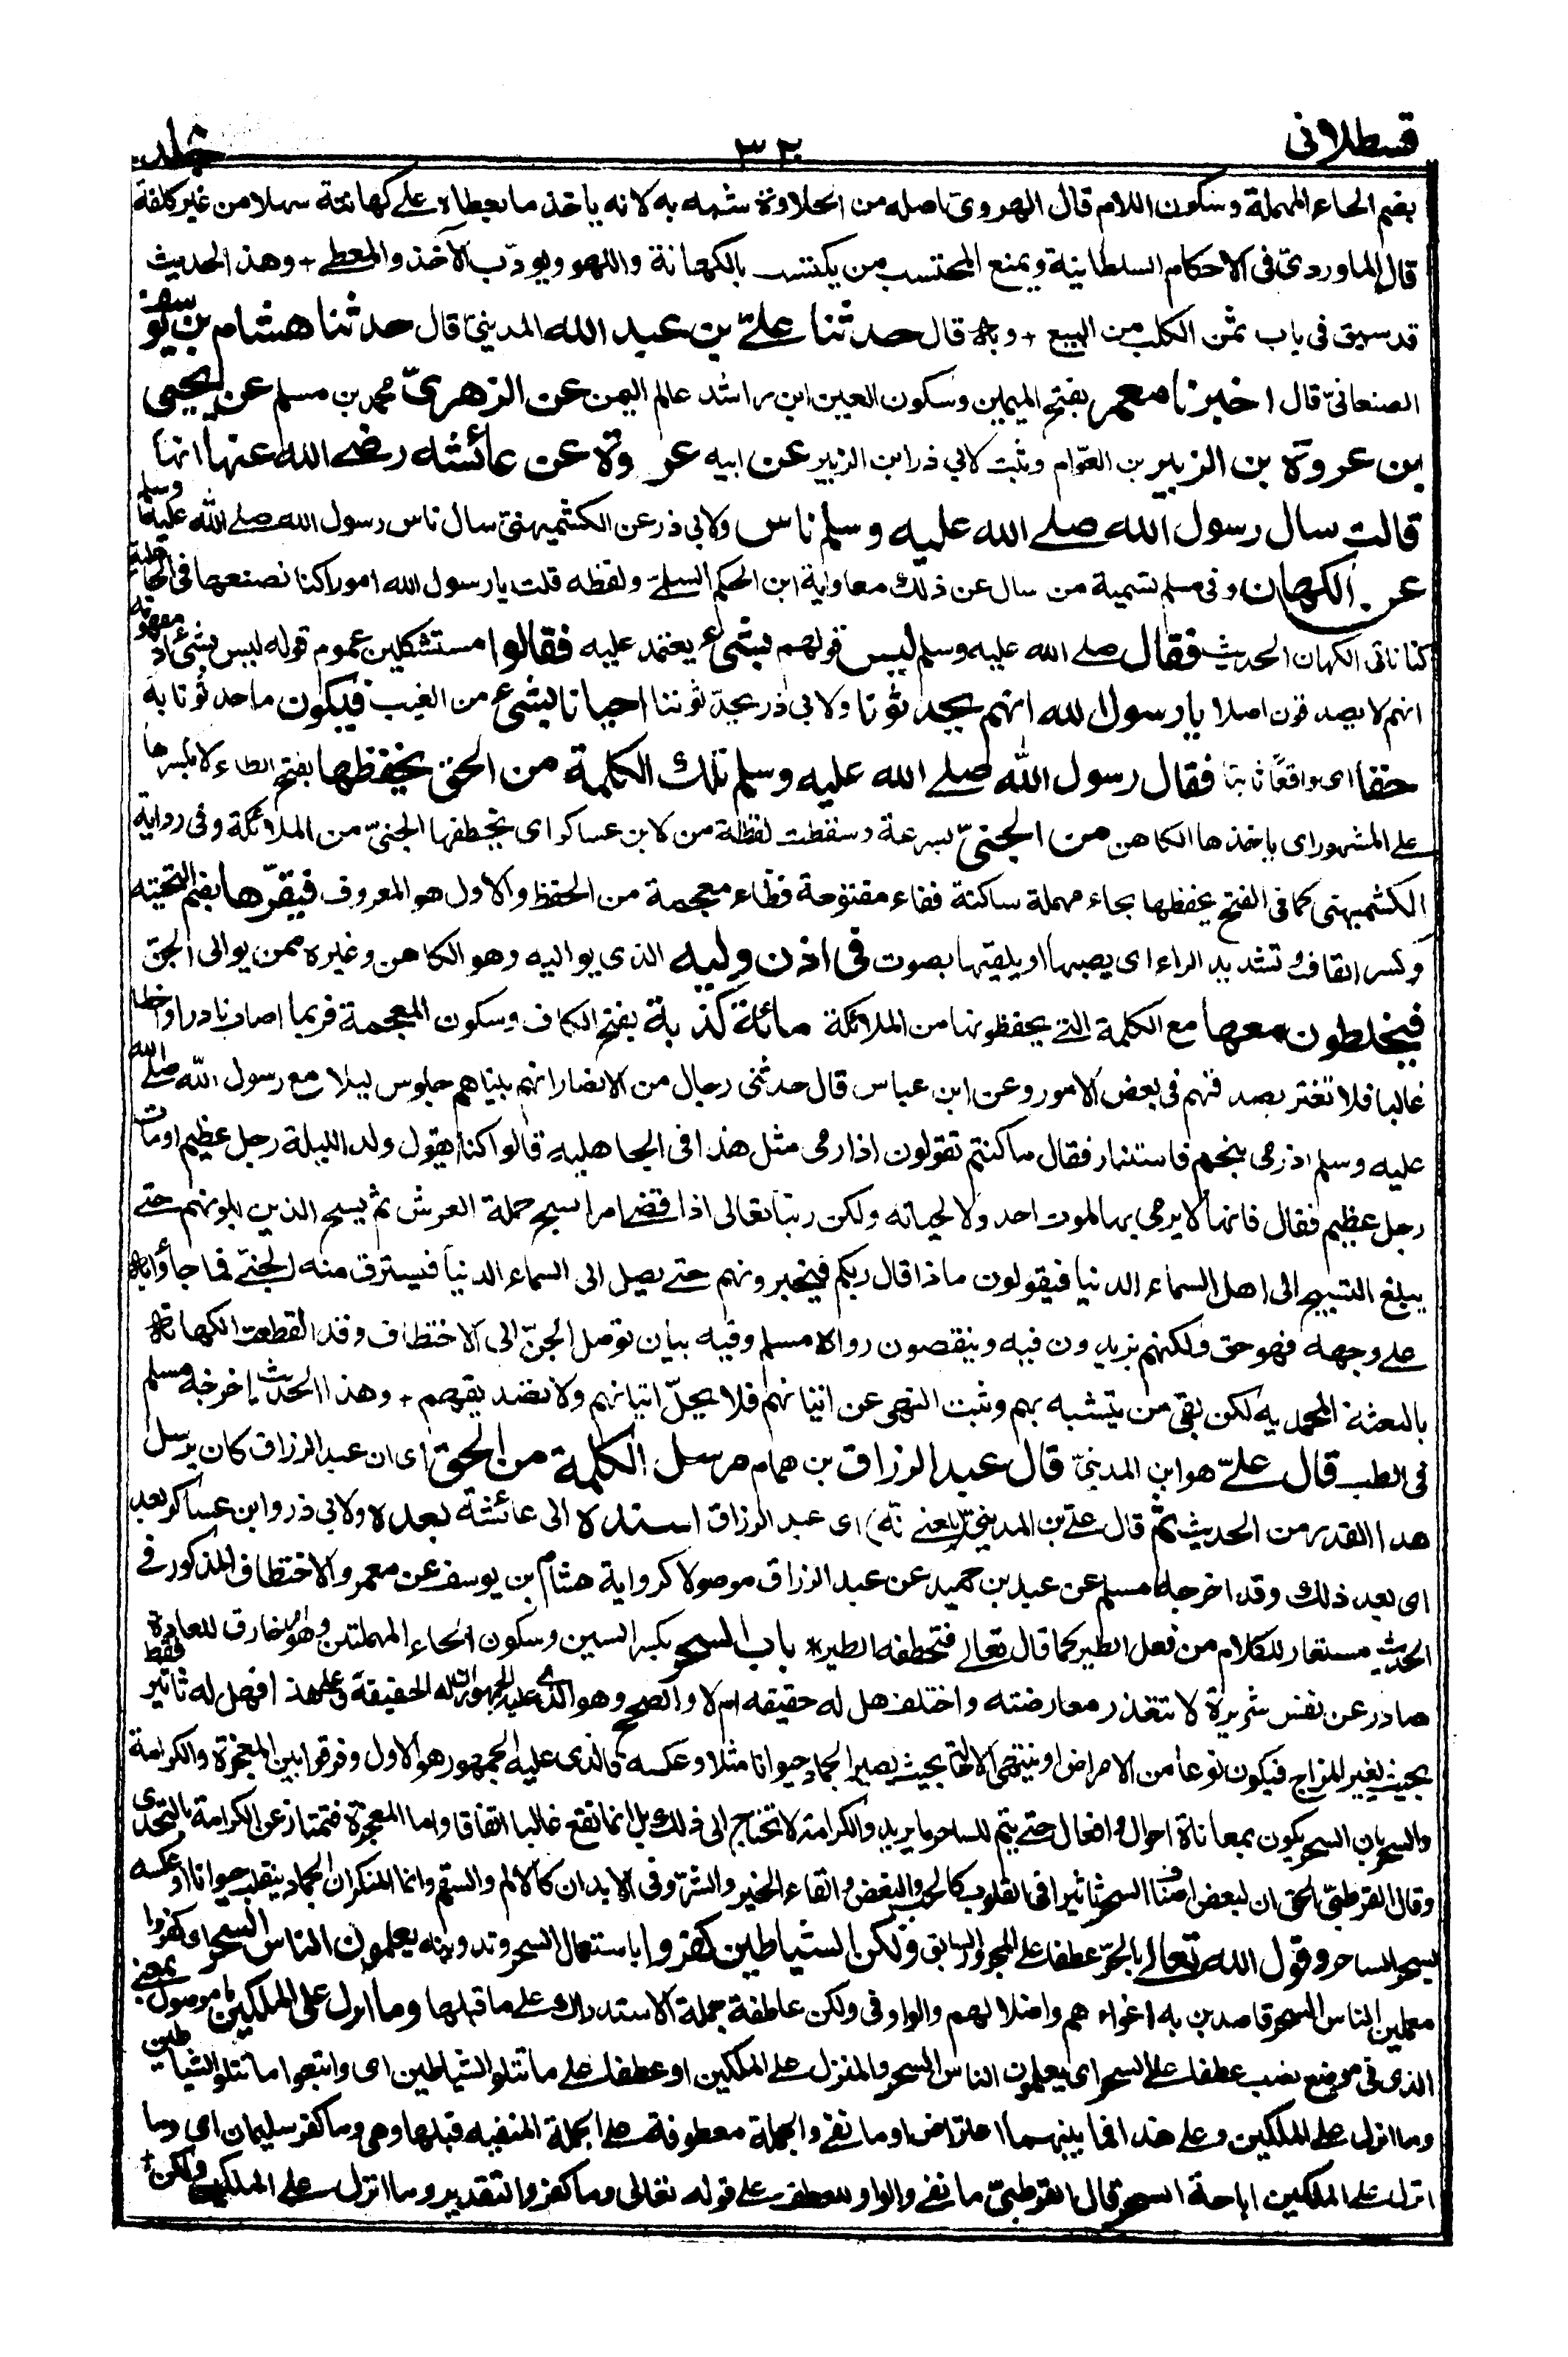 قسطلانی
٣٢٠
جلد
بضم الحاء المهملة وسكون اللام قال الهروىّ اصله من الحلاوة شبه به لانه ياخذ ما يعطاه على كهانته سهلا من غير كلفة
قال الماوردىّ فى الاحكام السلطانية ويمنع المحتسب من يكتسب بالكهانة واللهو ويودّب الآخذ والمعطى + وهذ الحديث
قد سبق فى باب ثمن الكلب من البيع + وبه قال حدثنا علىّ بن عبد الله المدينىّ قال حدثنا هشام بن يوسف
الصنعانىّ قال اخبرنا معمر بفتح الميمين وسكون العين ابن راشد عالم اليمن عن الزهرىّ محمد بن مسلم عن يحيى
بن عروة بن الزبير بن العوّام وثبت لابي ذر ابن الزبير عن ابيه عروة عن عائشه رضى الله عنها انها
قالت سال رسول الله صلى الله عليه وسلم ناس ولابي ذر عن الكشميهنىّ سال ناس رسول الله صلى الله عليه وسلم
عن الكهان وفى مسلم تسمية من سال عن ذلك معاوية ابن الحكم السلمىّ ولفظه قلت يا رسول الله امورا كنا نصنعها فى الجاهلية
كنا ناتى الكهان الحديث فقال صلى الله عليه وسلم ليس قولهم بشىء يعتمد عليه فقالوا مستشكلين عموم قوله ليس بشىء اذ مفهومه
انهم لا يصدقون اصلا يا رسول الله انهم يحدثونا ولابي ذر يحدّثوننا احيانا بشىء من الغيب فيكون ما حدثونا به
حقا اى واقعًا ثابتا فقال رسول الله صلى الله عليه وسلم تلك الكلمة من الحق يخفظها بفتح الطاء لا بكسرها
على المشهور اى ياخذها الكاهن من الجنىّ بسرعة وسقطت لفظة من لابن عساكر اى يخطفها الجنىّ من الملائكة وفى رواية
الكشميهنى كما فى الفتح يحفظها بحاء مهملة ساكنة ففاء مفتوحة فظاء معجمة من الحفظ والاول هو المعروف فيقرّها بضم التحتيه
وكسر القاف وتشديد الراء اى يصبها او يلقيها بصوت فى اذن وليه الذى يواليه وهو الكاهن وغيره ممن يوالى الجنّ
فيخلطون معها مع الكلمة التى يحفظونها من الملائكة مائة كذبة بفتح الكاف وسكون المعجمة فربما اصاب نادرا واخطا
غالبا فلا تغتر بصدقهم فى بعض الامور وعن ابن عباس قال حدثنى رجال من الانصار انهم بيناهم جلوس ليلا مع رسول الله صلى الله
عليه وسلم اذ رمى بنجم فاستنار فقال ما كنتم تقولون اذا رمى مثل هذا فى الجاهليه قالوا كنا نقول ولد الليلة رجل عظيم او مات
رجل عظيم فقال فانها لا يرمى بها لموت احد ولا لحياته ولكن ربنا تعالى اذا قضى امرا سبح حملة العرش ثم يسبح الذين يلونهم حتى
يبلغ التسبيح الى اهل السماء الدنيا فيقولون ماذا قال ربكم فيخبرونهم حتى يصل الى السماء الدنيا فيسترق منه الجنىّ فما جاؤا به
على وجهه فهو حق ولكنهم يزيدون فيه وينقصون رواه مسلم وفيه بيان توصل الجنّ الى الاختطاف وقد انقطعت الكهانة
بالبعثة المحمديه لكن بقى من يتشبه بهم وثبت النهى عن اتيانهم فلا يحلّ اتيانهم ولا تصديقهم + وهذا الحديث اخرجه مسلم
فى الطب قال علىّ هو ابن المدينىّ قال عبد الرزاق بن همام مرسل الكلمة من الحق اى ان عبد الرزاق كان يرسل
هذا القدر من الحديث ثم قال على بن المدينىّ (بلغنى انه) اى عبد الرزاق اسنده الى عائشة بعده ولابي ذر وابن عساكر بعد
اى بعد ذلك وقد اخرجه مسلم عن عبد بن حميد عن عبد الرزاق موصولا كرواية هشام بن يوسف عن معمر والاختطاف المذكور فى
الحديث مستعار للكلام من فعل الطير كما قال تعالى فتخطفه الطير* باب السحر بكسر السين وسكون الحاء المهملتين وهو امر خارق للعادة
صادر عن نفس شريرة لا تتعذر معارضته واختلف هل له حقيقه ام لا والصحيح وهو الذى عليه الجمهور ان له الحقيقة وعلى هذا فهل له تاثير فقط
بحيث يغير المزاج فيكون نوعا من الامراض او ينتهى الى الاحالة بحيث يصير الجماد حيوانا مثلا وعكسه فالذى عليه الجمهور هو الاول وفرقوا بين المعجزة والكرامة
والسحر بان السحر يكون بمعاناة اقوال وافعال حتى يتم للساحر ما يريد والكرامة لا تحتاج الى ذلك بل انما تقع غالبا اتفاقا واما المعجزة فتمتاز عن الكرامة بالتحدى
وقال القرطبىّ الحق ان لبعض اصناف السحر تاثيرا فى القلوب كالحب والبغض والقاء الخير والشرّ وفى الابدان كالالم والسقم وانما المنكر ان الجماد ينقلب حيوانا او عكسه
بسحر الساحر وقول الله تعالى بالجرّ عطفا على المجرور السابق ولكن الشياطين كفروا باستعمال السحر وتدوينه يعلمون الناس السحر او كفروا
معلمين الناس السحر قاصدين به اغواءهم واضلالهم والواو فى ولكن عاطفة جملة الاستدراك على ما قبلها وما انزل على الملكين ما موصول بمعنى
الذى فى موضع نصب عطفا على السحر اى يعلمون الناس السحر والمنزل على الملكين او عطفا على ما تتلو الشياطين اى واتبعوا ما تتلو الشياطين
وما انزل على الملكين وعلى هذا فما بينهما اعتراض او ما نفى والجملة معطوفة على الجملة المنفيه قبلها وهى وما كفر سليمان اى وما
انزل على الملكين اباحة السحر قال القرطبىّ ما نفى والواو للعطف على قوله تعالى وما كفر والتقدير وما انزل على الملكين ولكن